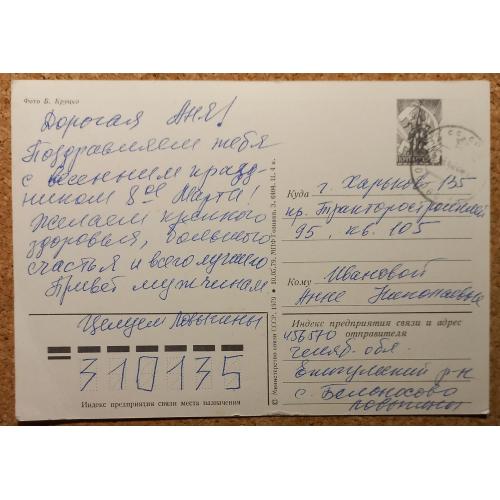 Фото Б. Круцко
Дорогая Аня!
Поздравляем тебя
с весенним празд-
ником 8ое Марта!
Желаем крепкого
здоровья, большого
счастья и всего лучшего
Привет мужчинам
Целуем Ловыгины
310135
Индекс предприятия связи места назначения
© Министерство связи СССР, 1979 ● 10.05.79. МПФ Гознака. З. 6404. Ц. 4 к.
ПОЧТА СССР
Куда г. Харьков 135
пр. Тракторостроителей
95, кв. 105
Кому Ивановой
Анне Николаевне
Индекс предприятия связи и адрес
отправителя
456570
Челяб. обл.
Еткульский р-н
с. Белоусово
Ловыгины